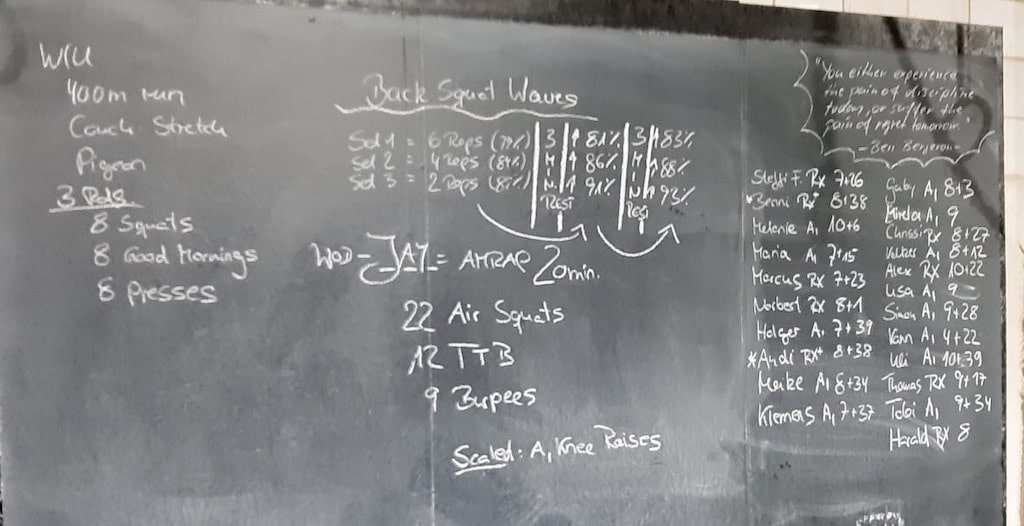 W/U
400m run
Couch Stretch
Pigeon
3 Rds
8 Squats
8 Good Mornings
8 Presses
Back Squat Waves
Set 1 = 6 Reps 3 81% 3 83%
Set 2 = 4 Reps M 86% M 88%
Set 3 = 2 Reps I 91% I 93%
N N
REST Rest
WOD - "JAY" = AMRAP 20min.
22 Air Squats
12 TTB
9 Burpees
Scaled: A, Knee Raises
"You either experience
the pain of discipline
today, or suffer the
pain of regret tomorrow."
- Ben Bergeron -
Steffi F. RX 7+26
Benni RX+ 8+38
Melanie A, 10+6
Maria A, 7+15
Marcus RX 7+23
Norbert RX 8+1
Holger A, 7+39
*Andi RX+ 8+38
Meike A, 8+34
Klemens A, 7+37
Gaby A, 8+3
A, 9
Chrissi RX 8+27
Volker A, 8+12
Alex RX 10+22
Lisa A, 9
Simon A, 9+28
Yann A, 4+22
Uli A, 10+39
Thomas RX 9+17
Tobi A, 9+34
Harald RX 8